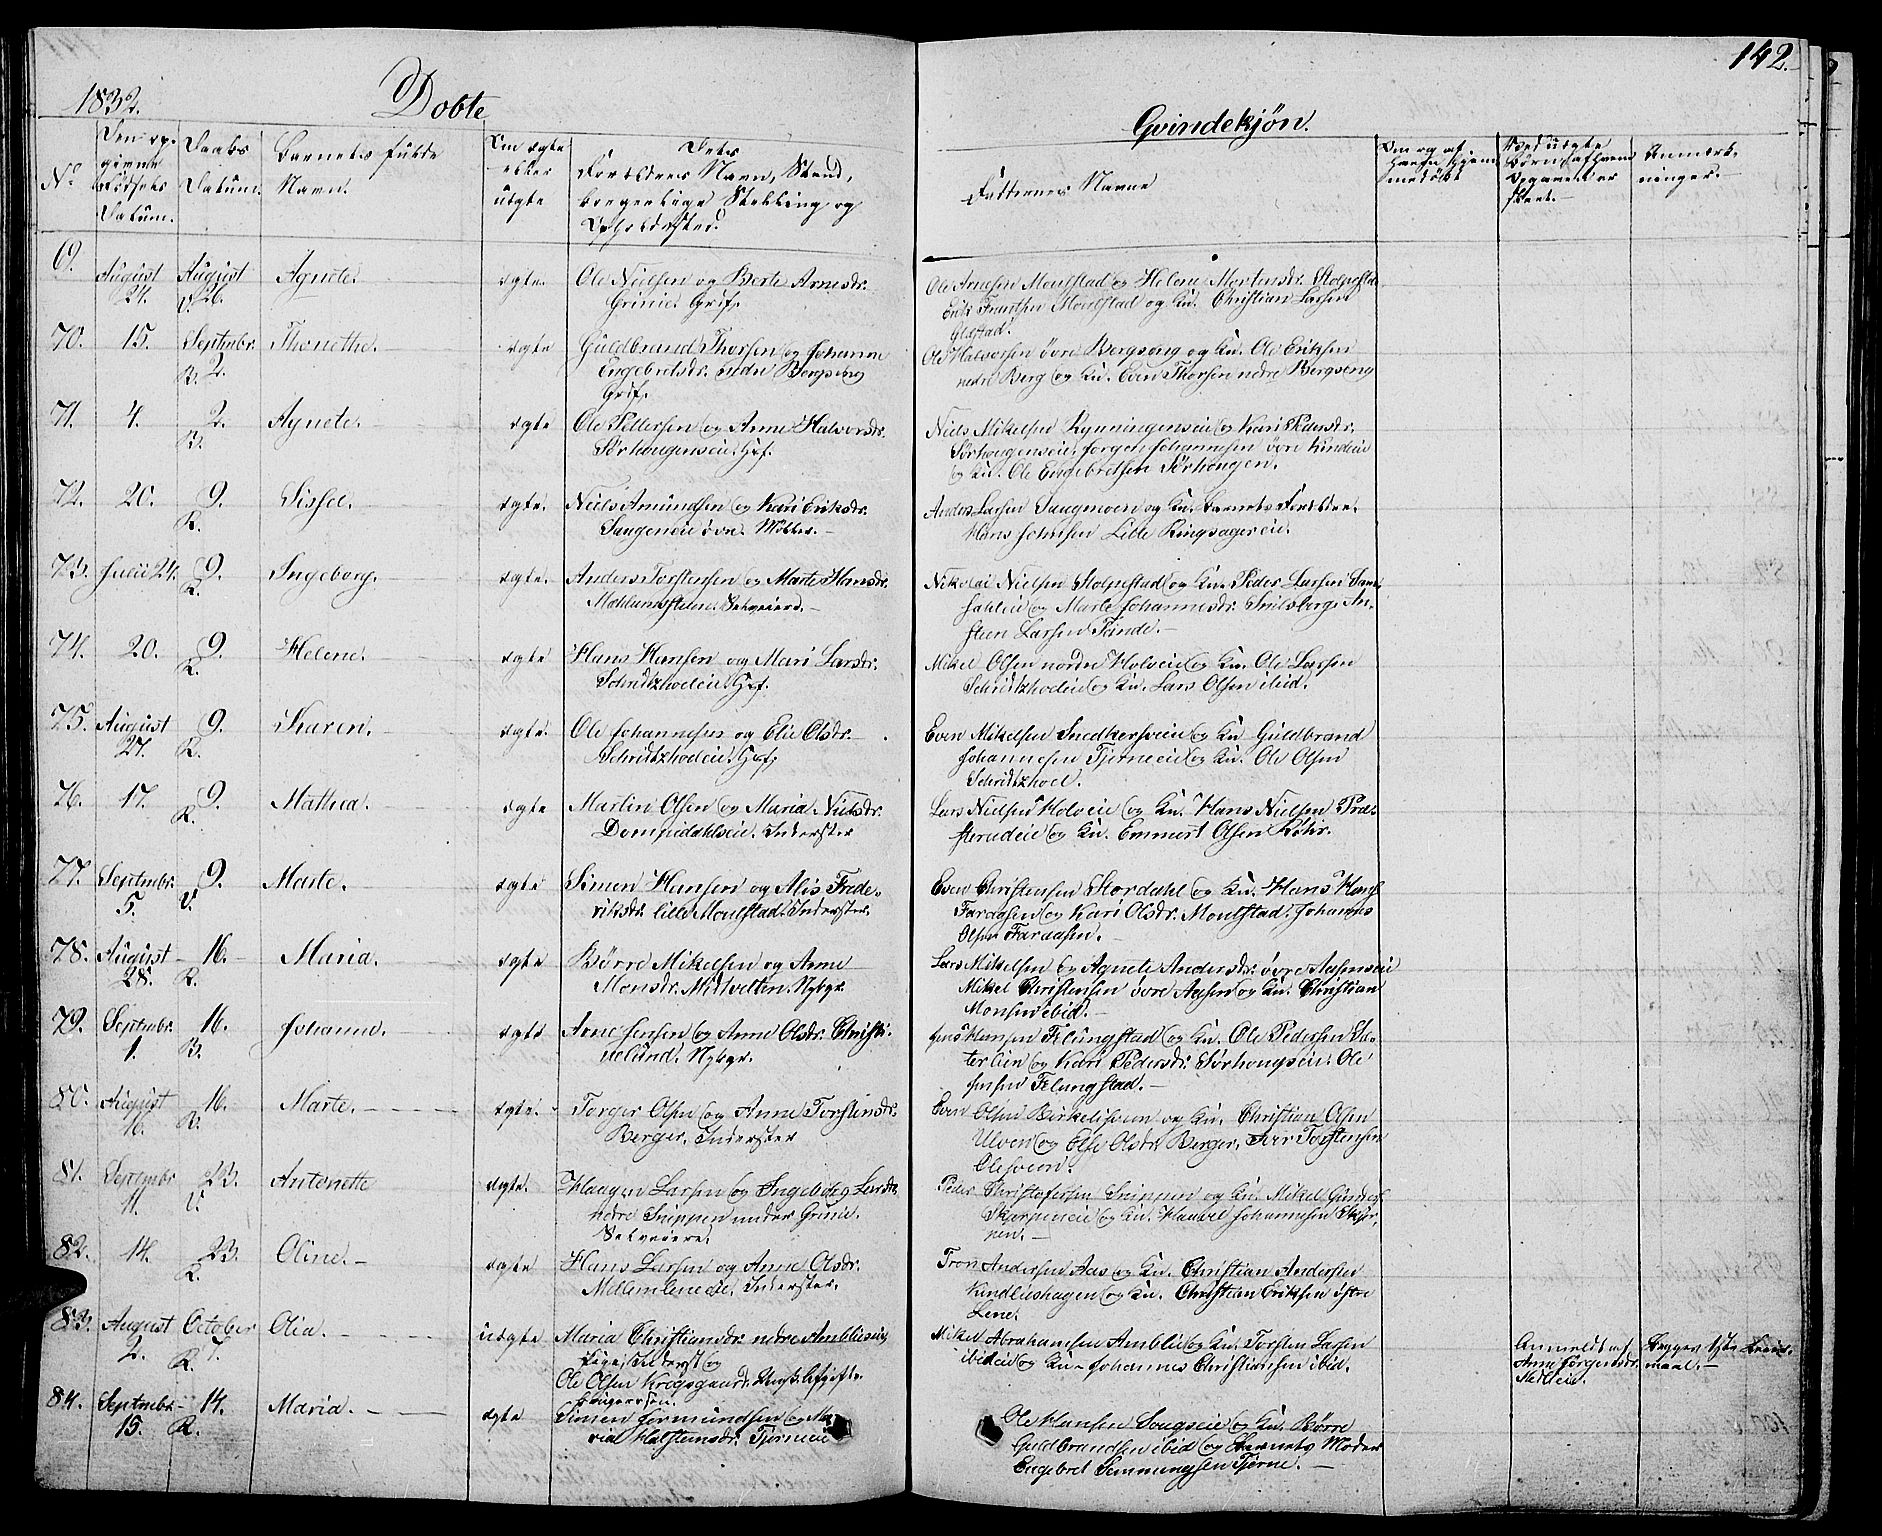 142.
1832.
Døbte
Qvindekjøn.
No
Den op-
givne
Fødsels
Datum.
Daabs
Datum.
Barnets fulde
Navn.
Om ægte
eller
uægte
Dets
Forældres Navn, Stand,
borgerlige Stilling og
Opholdssted.
Faddernes Navne
Om og af
hvem hjem-
medøbt
Ved uægte
Børn, af hvem
Opgaven er
skeet.
Anmærk-
ninger.
69.
August
24.
August
V. 26.
Agnete.
ægte.
Ole Nielsen og Berte Arnesdr.
Grime. Grdf.
Ole Arnesen Moulstad og Helene Mortensdr. Stolpestad
Moulstad og Ku. Christian Larsen
70.
15.
Septembr.
B. 2.
Thonette.
ægte
Guldbrand Thorsen og Johanne
Engebretsdr. nedre Bergseng
Grdf.
Ole Halvorsen övre Bergseng og Ku. Ole Eriksen
nedre Berg og Ku. Even Thorsen nedre Bergseng
71.
4.
2.
B.
Agnete.
ægte
Ole Pettersen og Anne Halvorsdr.
Sörhougenseie. Huf.
Niels Mikelsen Kynningenseie og Kari Pedersdr.
Sörhougenseie. Jörgen Johannesen övre Kindlie
og Ku. Ole Engebretsen Sörhougen.
72.
20.
9.
R.
Sissel.
ægte.
Niels Amundsen og Kari Eriksdr.
Saugeneie övre. Möller.
Anders Larsen Saugmoen og Ku. Barnets Forældre.
Hans Johnsen Lille Ringsagereie.
73.
Julii 24.
9.
R.
Ingeborg.
ægte.
Anders Torstensen og Marte Hansdr.
Selveiere.
Nikolai Nielsen Stolpestad og Ku. Peder Larsen
og Marte Johannesdr. Snilsberg. An-
sten Larsen Tande.
74.
20.
9.
R.
Helene.
ægte
Hans Hansen og Mari Larsdr.
Schridtzhoeleie. Huf.
Mikel Olsen nordre Holveie og Ku. Ole Larsen
Schridtzhoeleie og Ku. Lars Olsen ibid.
75.
August
27.
9.
R.
Karen.
ægte.
Ole Johannesen og Elie Olsdr.
Schridtzhoeleie. Huf.
Even Mikelsen Snedkersveie og Ku. Guldbrand
Johannesen Tjerneeie og Ku. Ole Olsen
Schridtzhoel.
76.
17.
9.
R.
Mathea.
ægte
Martin Olsen og Maria Nielsdr.
Dompidahlseie. Inderster
Lars Nielsen Holveie og Ku. Hans Nielsen Præ-
sterudeie og Ku. Emmert Olsen Röhr.
77.
Septembr.
5.
9.
V.
Marte.
ægte
Simen Hansen og Alis Frede-
riksdr. lille Moulstad. Inderster.
Even Christensen Stordahl og Ku. Hans Hans.
Faraasen og Kari Olsdr. Moulstad. Johannes
Olsen Faraasen.
78.
August
28.
16.
R.
Maria.
ægte
Börre Mikelsen og Anne
Monsdr. Midtvetten. Nybgr.
Lars Mikelsen og Agnete Andersdr. övre Aaseneie
Mikel Christensen övre Aasen og Ku. Christian
Monsen ibid.
79.
Septembr.
1.
16.
B.
Johanne.
ægte
Arne Jensen og Anne Olsdr. Christi-
nelund. Nybgr.
Jens Hansen Felungstad og Ku. Ole Pedersen Sæ-
terlien og Kari Pedersdr. Sörhougseie. Ole
Jensen Felungstad.
80.
August
16.
16.
B.
Marte.
ægte.
Torger Olsen og Anne Torstensdr.
Berger. Inderster
Even Olsen og Ku. Christian Olsen
Ulven og Else Olsdr. Berger. Iver Torstensen
Olesveen.
81.
Septembr
11.
23.
V.
Antonette
ægte.
Haagen Larsen og Ingeborg Larsdr.
nedre Snippen under Grime.
Selveiere.
Peder Christofersen Snippen og Ku. Mikel Gunders.
Skarpeneie og Ku. Haavel Johannesen Skjer-
nen.
82.
14.
23.
R.
Oline.
ægte
Hans Larsen og Anne Olsdr.
Mellemleneeie. Inderster.
Tron Andersen Aas og Ku. Christian Andersen
Kindliehagen og Ku. Christian Eriksen östre
Lene.
83.
August
2.
October
R. 7.
Olia.
uægte
Maria Christiansdr. nedre Amblieeie
Pige, Inderst og
Ole Olsen Krigsgaard.
Mikel Abrahamsen Amblie og Ku. Torsten Larsen
ibideie og Ku. Johannes Christiansen ibid.
Anmeldt af
Anne Jörgensdr.
Begges 1ste Leier-
maal.
84.
Septembr.
15.
14.
R.
Maria.
ægte
Simen Jermundsen og Ma-
ria Halstensdr. Tjerneeie
Ole Hansen Sougseie og Ku. Börre
Guldbrandsen ibid og Barnets Moder
Engebret Semmingsen Tjerne.